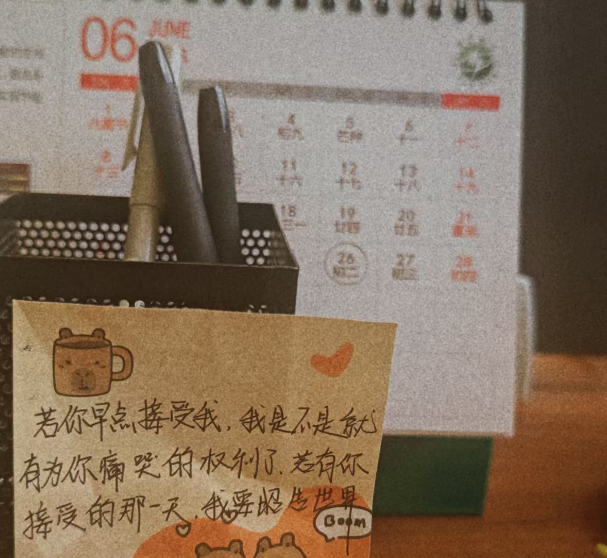 06 JUNE
4 5 6 7
初九 芒种 十一 十二
8 11 12 13 14
十三 十六 十七 十八 十九
18 19 20 21
廿四 廿五
26 27 28
初二 初三 初四
若你早点接受我,我是不是就
有为你痛哭的权利了.若有你
接受的那一天,我要昭告世界
Boom